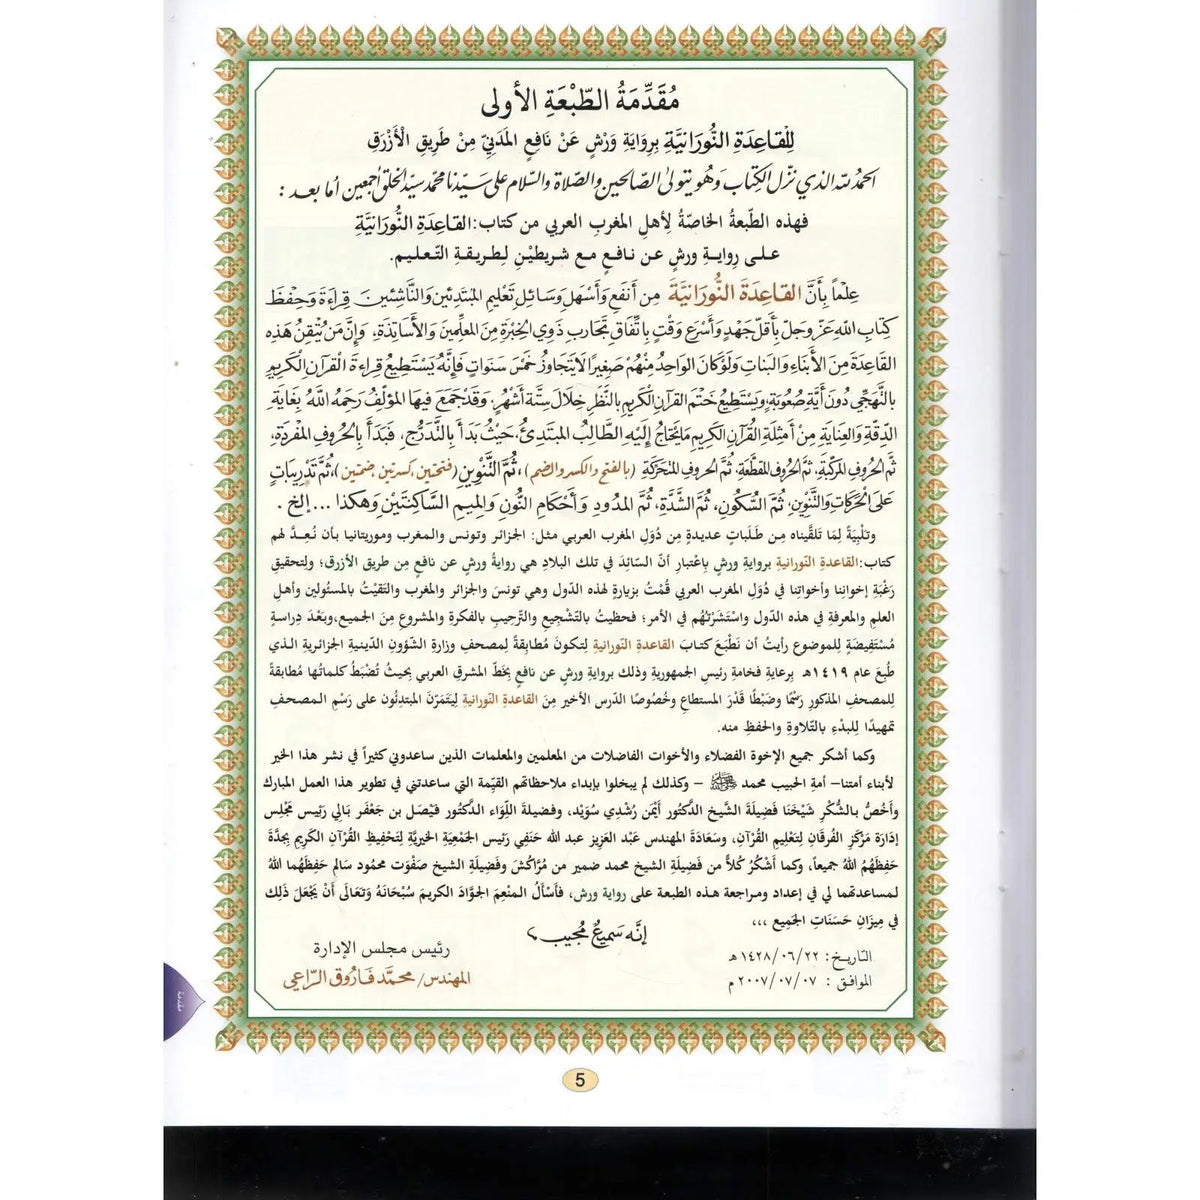 مُقَدِّمَةُ الطَّبْعَةِ الأولى
لِلْقاعِدَةِ النُّورَانِيَّةِ بِرِوَايَةِ وَرْشٍ عَنْ نَافِعٍ المَدَنِيِّ مِنْ طَرِيقِ الْأَزْرَقِ
الحمدُ لله الذي نزّل الكِتاب وَهُو يتولى الصالحين والصّلاة والسّلام على سَيّدنا محمّد سيّد الخلق أجمعين أما بعد :
فهذه الطّبعةُ الخاصّةُ لِأهلِ المغربِ العربي من كتاب: القاعِدَةِ النُّورَانِيَّةِ
على رِوايةِ ورشٍ عن نافعٍ مع شريطيْنِ لِطريقةِ التّعليم.
عِلماً بِأَنَّ القاعِدَةَ النُّورَانِيَّةَ مِن أَنفَعِ وَأَسْهَلِ وَسَائِلِ تَعْلِيمِ المُبْتَدِئينَ وَالنَّاشِئينَ قِرَاءَةَ وَحِفْظَ
كِتَابِ اللهِ عَزَّ وَجلّ بِأَقلّ جَهدٍ وَأَسْرَعِ وَقْتٍ بِاتِّفَاقِ تَجَارِبِ ذَوِي الخِبْرَةِ مِنَ المُعَلِّمينَ وَالأَسَاتِذَةِ، وَإِنَّ مَنْ يُتْقِنُ هَذِهِ
القَاعِدَةَ مِنَ الأَبْنَاءِ وَالبَنَاتِ وَلَوْ كَانَ الوَاحِدُ مِنْهُمْ صَغِيرًا لَا يَتَجَاوَزُ خَمْسَ سَنَواتٍ فَإِنَّهُ يَسْتَطِيعُ قِرَاءَةَ القُرآنِ الكَرِيمِ
بالتَّهَجِّي دُونَ أَيَّةِ صُعُوبَةٍ، وَيَسْتَطِيعُ خَتْمَ القُرآنِ الكَرِيمِ بالنَّظَرِ خِلَالَ سِتَّةِ أَشْهُرٍ، وَقَدْ جَمَعَ فِيهَا المُؤَلِّفُ رَحِمَهُ اللهُ بِغَايَةِ
الدِّقَّةِ والعِنَايَةِ مِنْ أَمْثِلَةِ القُرآنِ الكَرِيمِ مَا يَحْتَاجُ إِلَيْهِ الطَّالِبُ المُبْتَدِئُ، حَيْثُ بَدَأَ بِالتَّدَرُّجِ، فَبَدَأَ بِالحُرُوفِ المُفْرَدَةِ،
ثُمَّ الحُرُوفِ المُرَكَّبَةِ، ثُمَّ الحُرُوفِ المُقَطَّعَةِ، ثُمَّ الحروفِ المُتَحَرِّكَةِ (بالفتحِ والكسرِ والضمِ)، ثُمَّ التَّنْوِينِ (فتحتين، كسرتين، ضمتين)، ثُمَّ تَدْرِيبَاتٍ
عَلَى الحَرَكَاتِ وَالتَّنْوِينِ، ثُمَّ السُّكُونِ، ثُمَّ الشَّدَّةِ، ثُمَّ المدودِ وَأَحْكَامِ النُّونِ وَالمِيمِ السَّاكِنَتَيْنِ وَهكذا ... إلخ .
وتلْبِيَةً لِمَا تَلَقَّيناه مِن طَلَبات عديدةٍ مِن دُوَلِ المغربِ العربي مثل: الجزائر وتونس والمغرب وموريتانيا بأن نُعِدَّ لهم
كتاب: القاعدةِ النّورانيةِ بروايةِ ورشٍ باعْتبارِ أنّ السّائِدَ في تلك البلادِ هي روايةُ ورشٍ عن نافعٍ مِن طريقِ الأزرق؛ ولتحقيقِ
رَغْبَةِ إخواننا وأخواتنا في دُوَلِ المغرب العربي قُمْتُ بزيارةٍ لهذه الدّول وهي تونسَ والجزائرِ والمغربِ والتقيْتُ بالمسئولين وأهلِ
العلمِ والمعرفةِ في هذه الدّول واسْتَشَرْتُهُم في الأمر؛ فحظيتُ بالتّشجيعِ والتّرحيبِ بالفكرةِ والمشروعِ مِنَ الجميعِ، وبَعْدَ دِراسةٍ
مُسْتَفِيضَةٍ للموضوعِ رأيتُ أن نَطْبَعَ كتابَ القاعدةِ النّورانيةِ لِتكونَ مُطابِقةً لِمصحفِ وزارةِ الشّؤونِ الدّينيةِ الجزائريةِ الذي
طُبِعَ عام ١٤١٩هـ بِرعايةِ فخامةِ رئيسِ الجمهوريةِ وذلك بروايةِ ورشٍ عن نافعٍ بِخطّ المشرقِ العربي بِحيثُ تُضْبَطُ كلماتُها مُطابقةً
لِلمصحفِ المذكورِ رَسْمًا وضَبْطًا قَدْرَ المستطاعِ وخُصُوصًا الدّرس الأخير مِنَ القاعدةِ النّورانيةِ لِيَتَمَرّنَ المبتدِئُون على رَسْمِ المصحفِ
تمهيدًا للبدْءِ بالتّلاوةِ والحفظِ منه.
وكما أشكر جميع الإخوة الفضلاء والأخوات الفاضلات من المعلمين والمعلمات الذين ساعدوني كثيراً في نشر هذا الخير
لأبناء أمتنا– أمةِ الحبيب محمد ﷺ – وكذلك لم يبخلوا بإبداء ملاحظاتهم القيّمة التي ساعدتني في تطوير هذا العمل المبارك
وأَخُصُّ بالشُّكْرِ شَيْخَنَا فَضِيلَةَ الشَّيخِ الدُّكتور أَيْمَن رُشْدِي سُوَيْد، وفضيلةَ اللِّواء الدُّكتور فَيْصَل بن جَعْفَر بالي رَئِيس مَجْلِس
إدَارَة مَرْكَزِ الفُرقَانِ لِتَعْلِيمِ القُرْآنِ، وسَعَادَةَ المهندس عَبْد العزيز عبد الله حَنَفِي رَئيس الجَمْعِيَةِ الخيريَّةِ لِتَحْفِيظِ القُرْآنِ الكَرِيمِ بِجُدَّةَ
حَفِظَهُمُ اللهُ جميعاً، وكما أَشْكُرُ كُلّاً من فَضِيلَةِ الشيخ محمد ضمير من مُرَّاكُش وفَضِيلَةِ الشيخ صَفْوَت محمُود سالم حَفِظَهُما اللهُ
لمساعدتهما لي في إعداد ومراجعة هذه الطبعة على رواية ورش، فأَسْألُ المنْعِمَ الجوَّادَ الكريمَ سُبْحَانَهُ وَتَعَالَى أَنْ يَجْعَلَ ذَلِكَ
في مِيزَانِ حَسَنَاتِ الجَمِيعِ ،،،
إنَّه سَمِيعٌ مُجِيب
التاريخ: ٢٢/ ٠٦/ ١٤٢٨ هـ
الموافق : ٠٧/ ٠٧/ ٢٠٠٧ م
رئيس مجلس الإدارة
المهندس/ محمَّد فَارُوق الرَّاعي
مقدمة
5